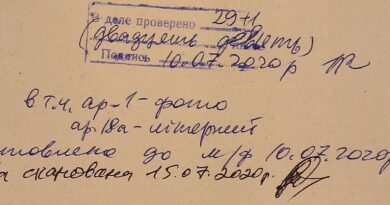 В деле проверено 29+1
(двадцять девять)
Подпись 10.07.2020 р
в т.ч. ар-1-фото
ар.18а-літерний
товлено до м/ф 10.07.2020
а сканована 15.07.2020р.